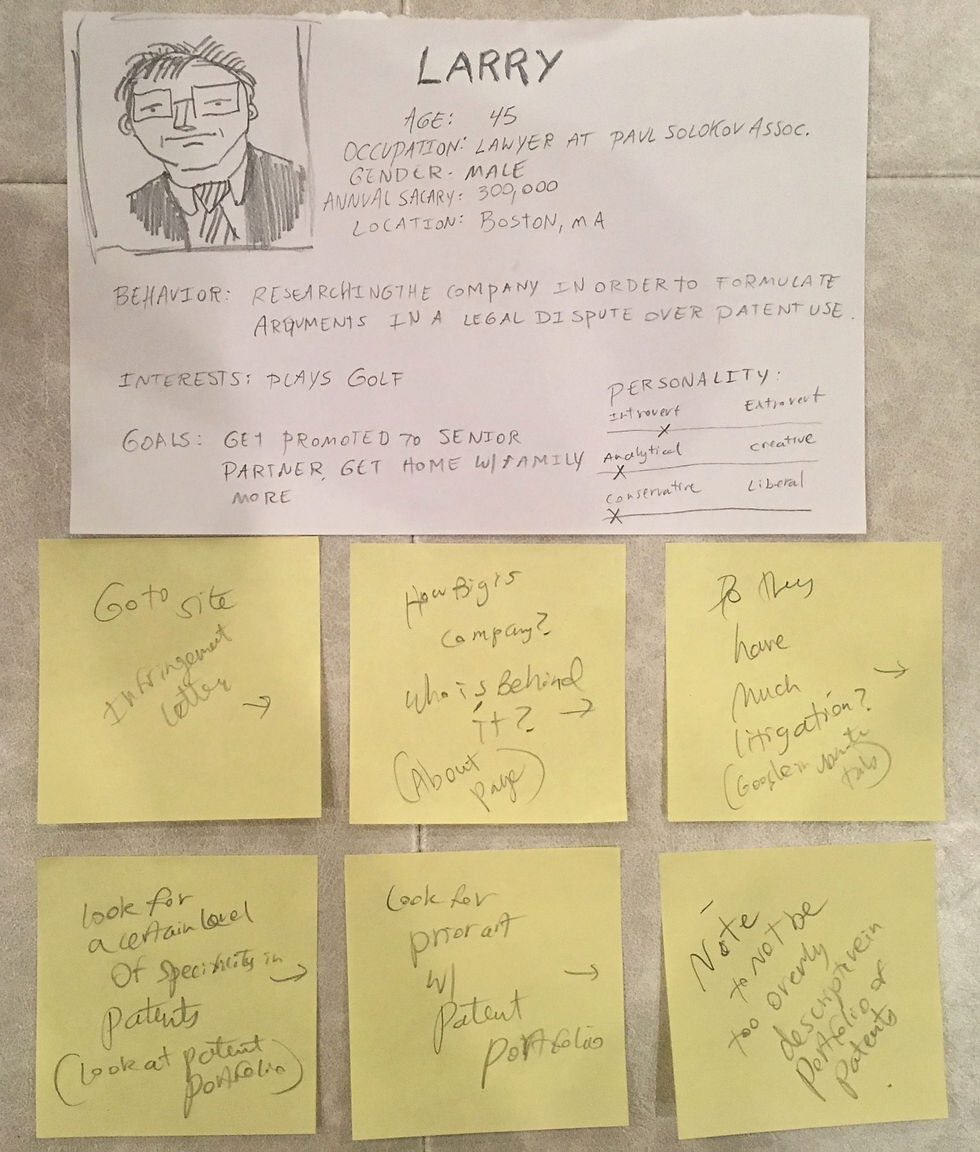 LARRY
AGE: 45
OCCUPATION: LAWYER AT PAUL SOLOKOV ASSOC.
GENDER: MALE
ANNUAL SALARY: 300,000
LOCATION: BOSTON, MA
BEHAVIOR: RESEARCHING THE COMPANY IN ORDER TO FORMULATE
ARGUMENTS IN A LEGAL DISPUTE OVER PATENT USE.
INTERESTS: PLAYS GOLF
GOALS: GET PROMOTED TO SENIOR
PARTNER, GET HOME W/ FAMILY
MORE
PERSONALITY:
Introvert Extrovert
X
Analytical creative
X
Conservative Liberal
X
Go to site
Infringement
letter →
How Big is
company?
who is Behind
it? →
(About
page)
Do they
have
much →
litigation?
(Google in
tabs)
look for
a certain level
Of specificity in →
patents
(look at patent
portfolio)
Look for
prior art
w/ →
patent
portfolio
Note
to not be
too overly
descriptive in
Portfolio of
patents.